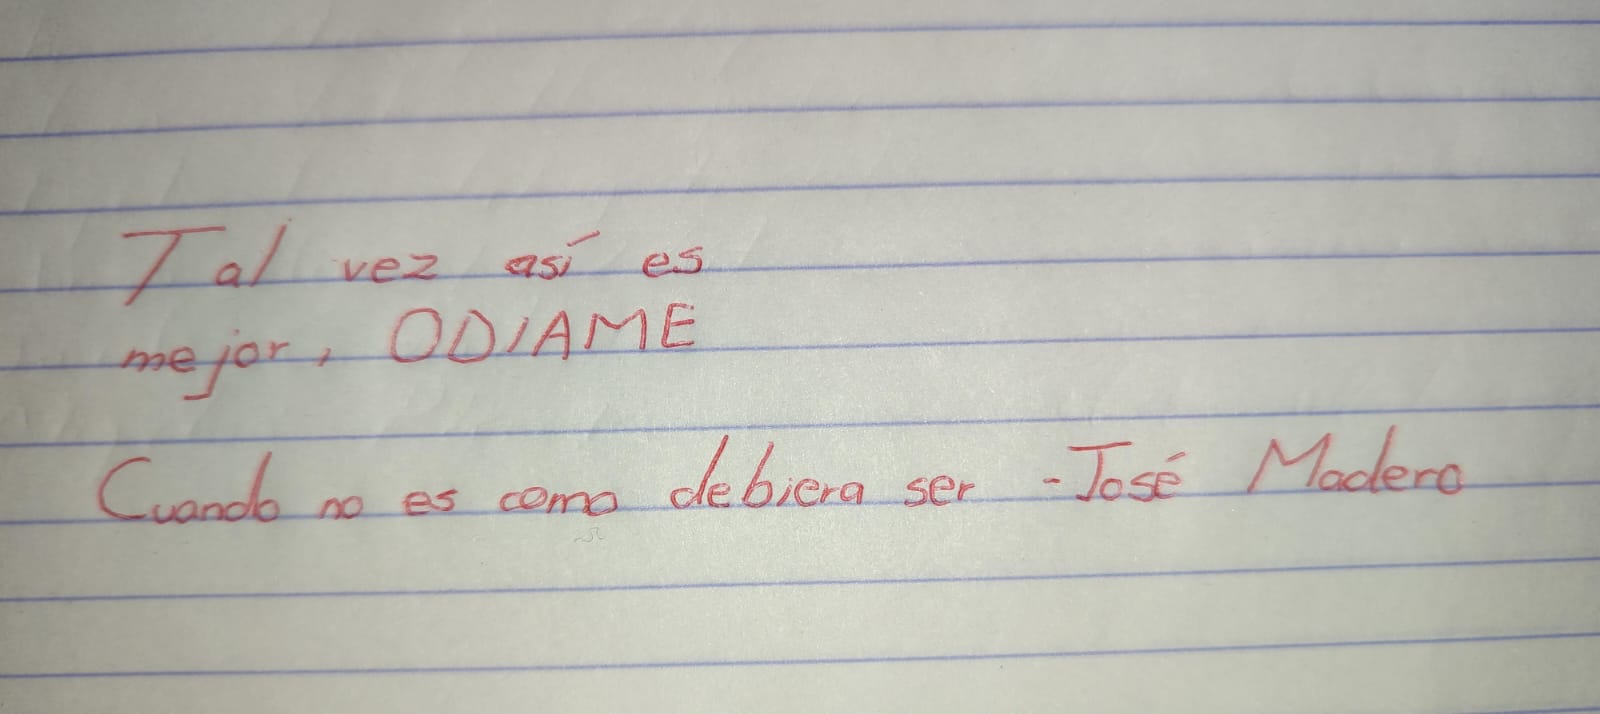 Tal vez así es
mejor, ODIAME
Cuando no es como debiera ser -José Madero